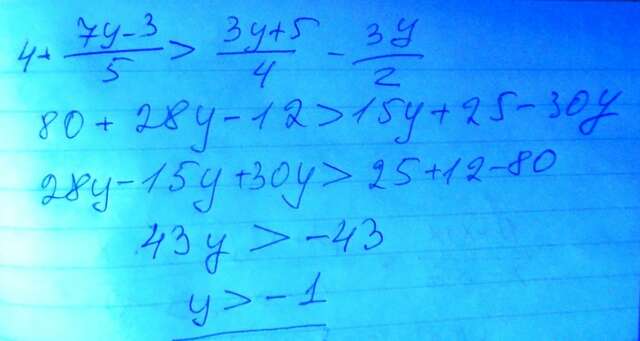 4+ (7y-3)/5 > (3y+5)/4 - 3y/2
80 + 28y - 12 > 15y + 25 - 30y
28y - 15y + 30y > 25 + 12 - 80
43y > -43
y > -1